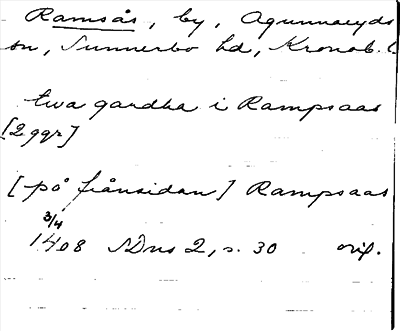 Ramsås, by, Agunnaryds
sn, Sunnerbo hd, Kronob. l
twa gardha i Rampsaas
[2 ggr]
[på frånsidan] Rampsaas
3/4
1408 SDns 2, s. 30 orig.